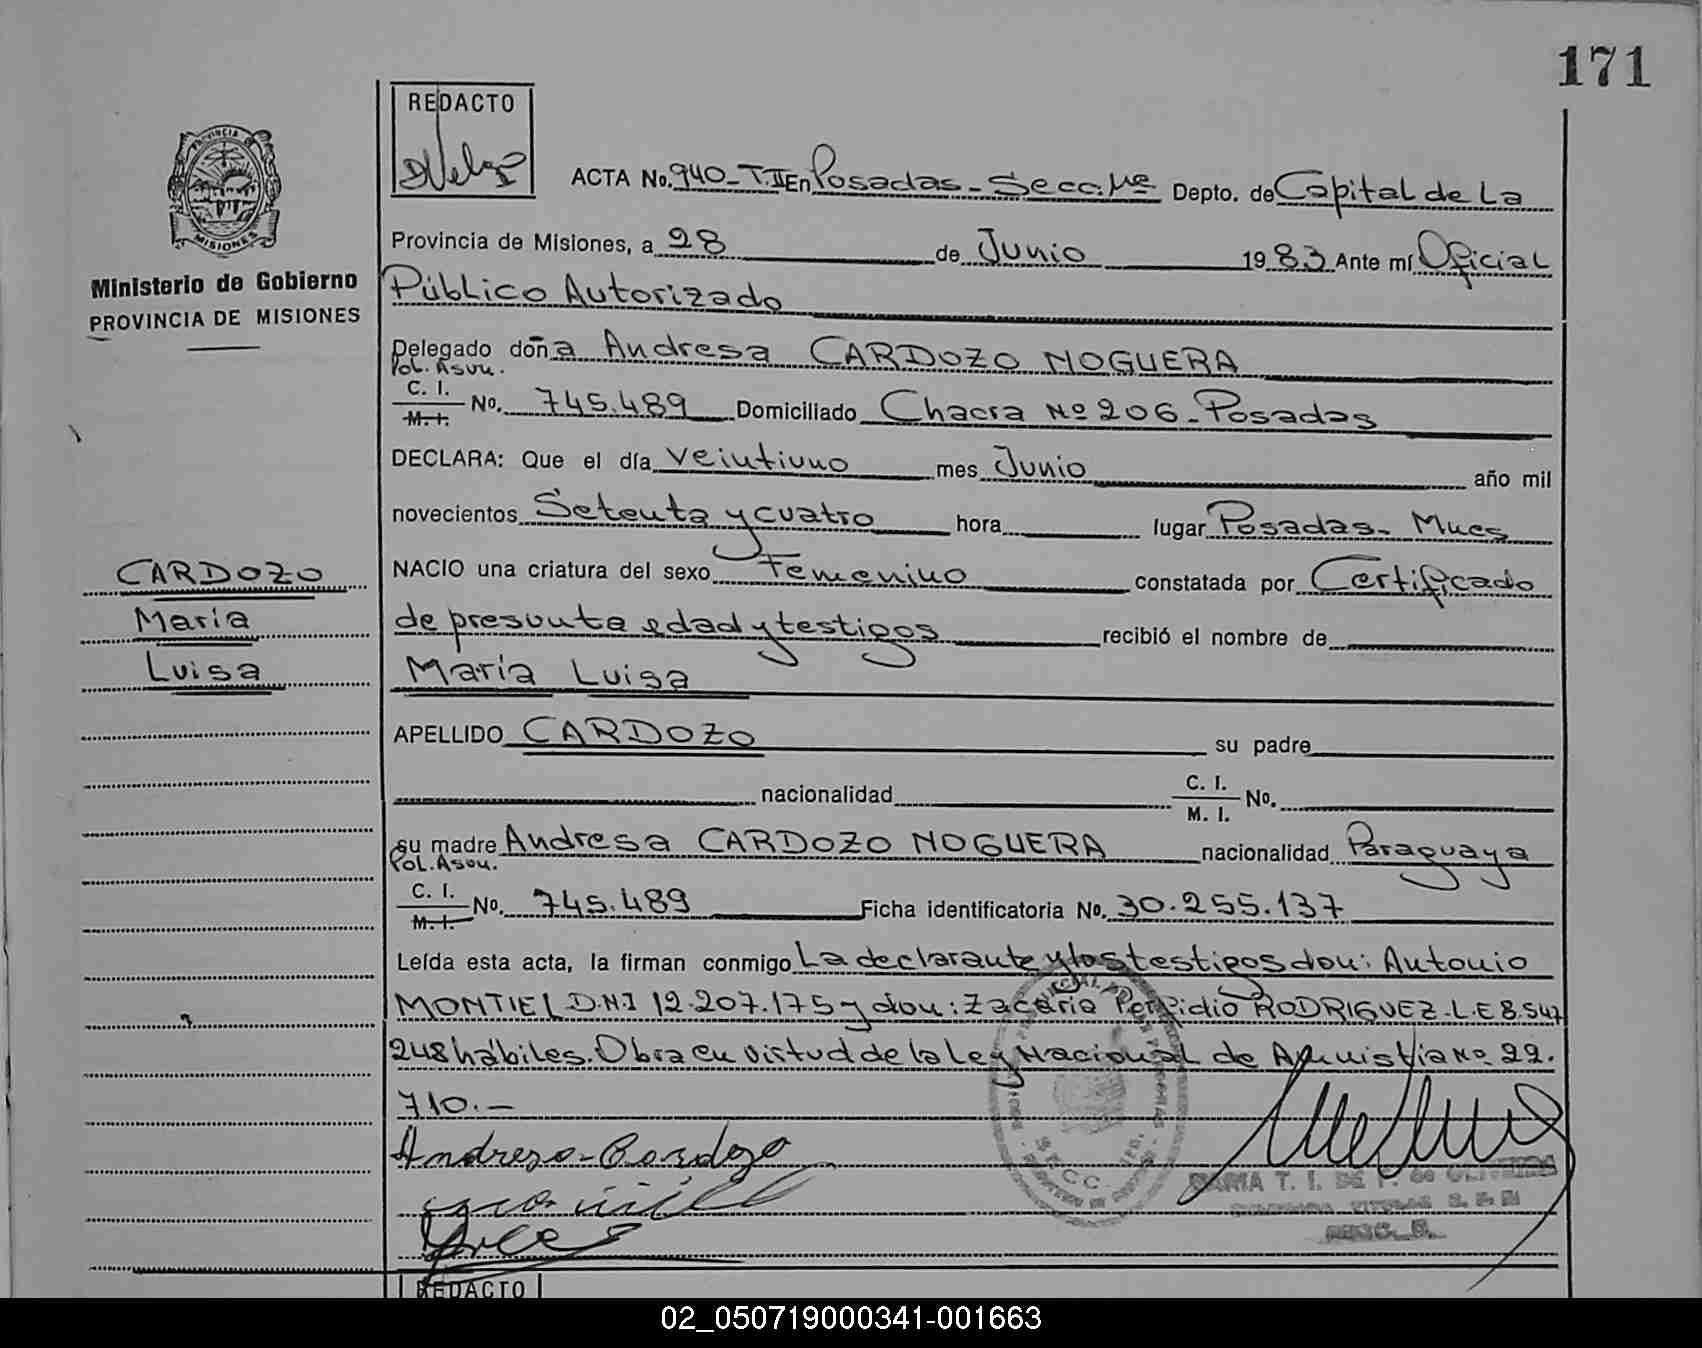 171
REDACTO
PROVINCIA DE
MISIONES
Ministerio de Gobierno
PROVINCIA DE MISIONES
ACTA No. 940-T.II En Posadas-Secc. Mº Depto. de Capital de La
Provincia de Misiones, a 28 de Junio 1983 Ante mí Oficial
Público Autorizado
Delegado doña Andresa CARDOZO NOGUERA
Pol. Asun.
C. I.
M. I. No. 745.489 Domiciliado Chacra Nº 206-Posadas
DECLARA: Que el día veintiuno mes Junio año mil
novecientos Setenta y cuatro hora lugar Posadas- Mnes
NACIO una criatura del sexo Femenino constatada por Certificado
de presunta edad y testigos recibió el nombre de
María Luisa
APELLIDO CARDOZO su padre
nacionalidad C. I.
M. I. No.
su madre Andresa CARDOZO NOGUERA nacionalidad Paraguaya
Pol. Asun.
C. I.
M. I. No. 745.489 Ficha identificatoria No. 30.255.137
Leída esta acta, la firman conmigo La declarante y los testigos don: Antonio
MONTIEL D.N.I 12.207.175 y don: Zacaria Porfidio RODRIGUEZ-L.E 8.547
248 hábiles. Obra en virtud de la Ley Nacional de Amnistia Nº 22.
710.-
Andresa-Cardozo
MARIA T. I. DE F. de OLIVEIRA
SECC.
CARDOZO
María
Luisa
REDACTO
02_050719000341-001663